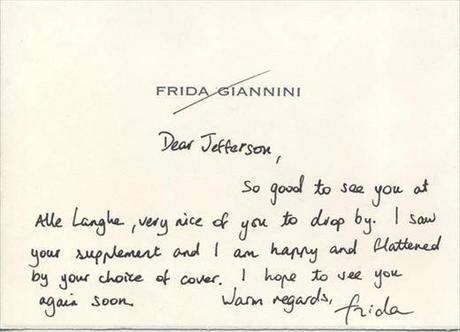 FRIDA GIANNINI
Dear Jefferson,
So good to see you at
Alle Langhe, very nice of you to drop by. I saw
your supplement and I am happy and flattened
by your choice of cover. I hope to see you
again soon. Warm regards, frida